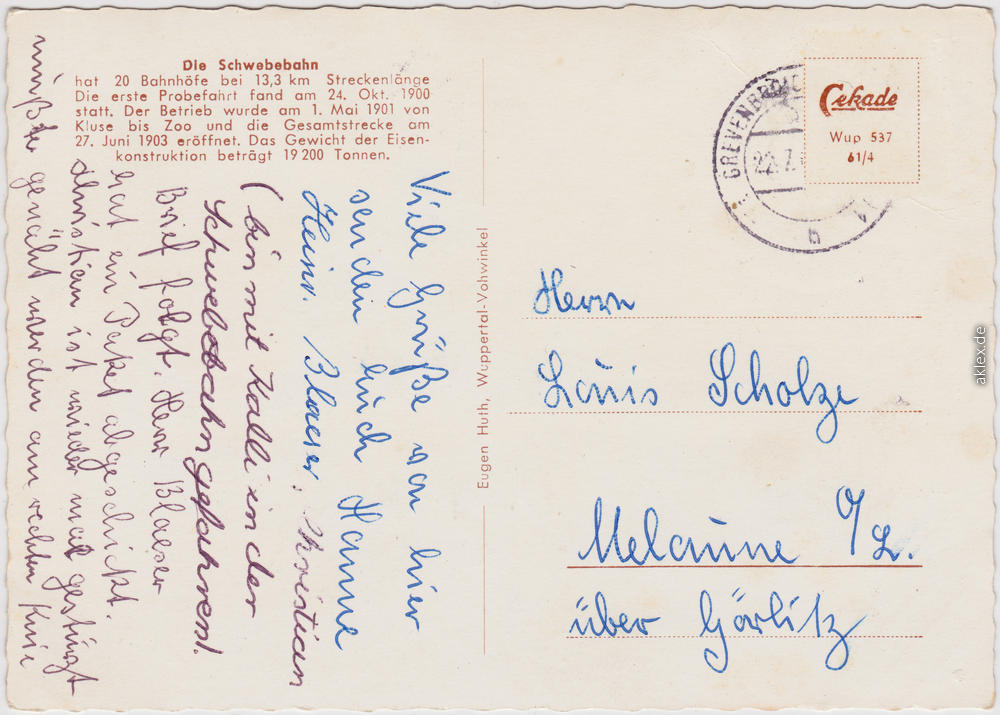 Die Schwebebahn
hat 20 Bahnhöfe bei 13,3 km Streckenlänge
Die erste Probefahrt fand am 24. Okt. 1900
statt. Der Betrieb wurde am 1. Mai 1901 von
Kluse bis Zoo und die Gesamtstrecke am
27. Juni 1903 eröffnet. Das Gewicht der Eisen-
konstruktion beträgt 19 200 Tonnen.
Viele Grüße von hier
senden Euch Hanne
Heinr. Blaeser, Christian
(bin mit Kalli in der
Schwebebahn gefahren!
Brief folgt. Herr Blaeser
hat ein Paket abgeschickt.
Christian ist wieder mal gestürzt
müßte genäht werden am rechten Knie
Eugen Huth, Wuppertal-Vohwinkel
GREVENBROIC
22.7.
b
Cekade
Wup 537
61/4
Herrn
Louis Scholze
Melaune O/L.
über Görlitz
aklex.de